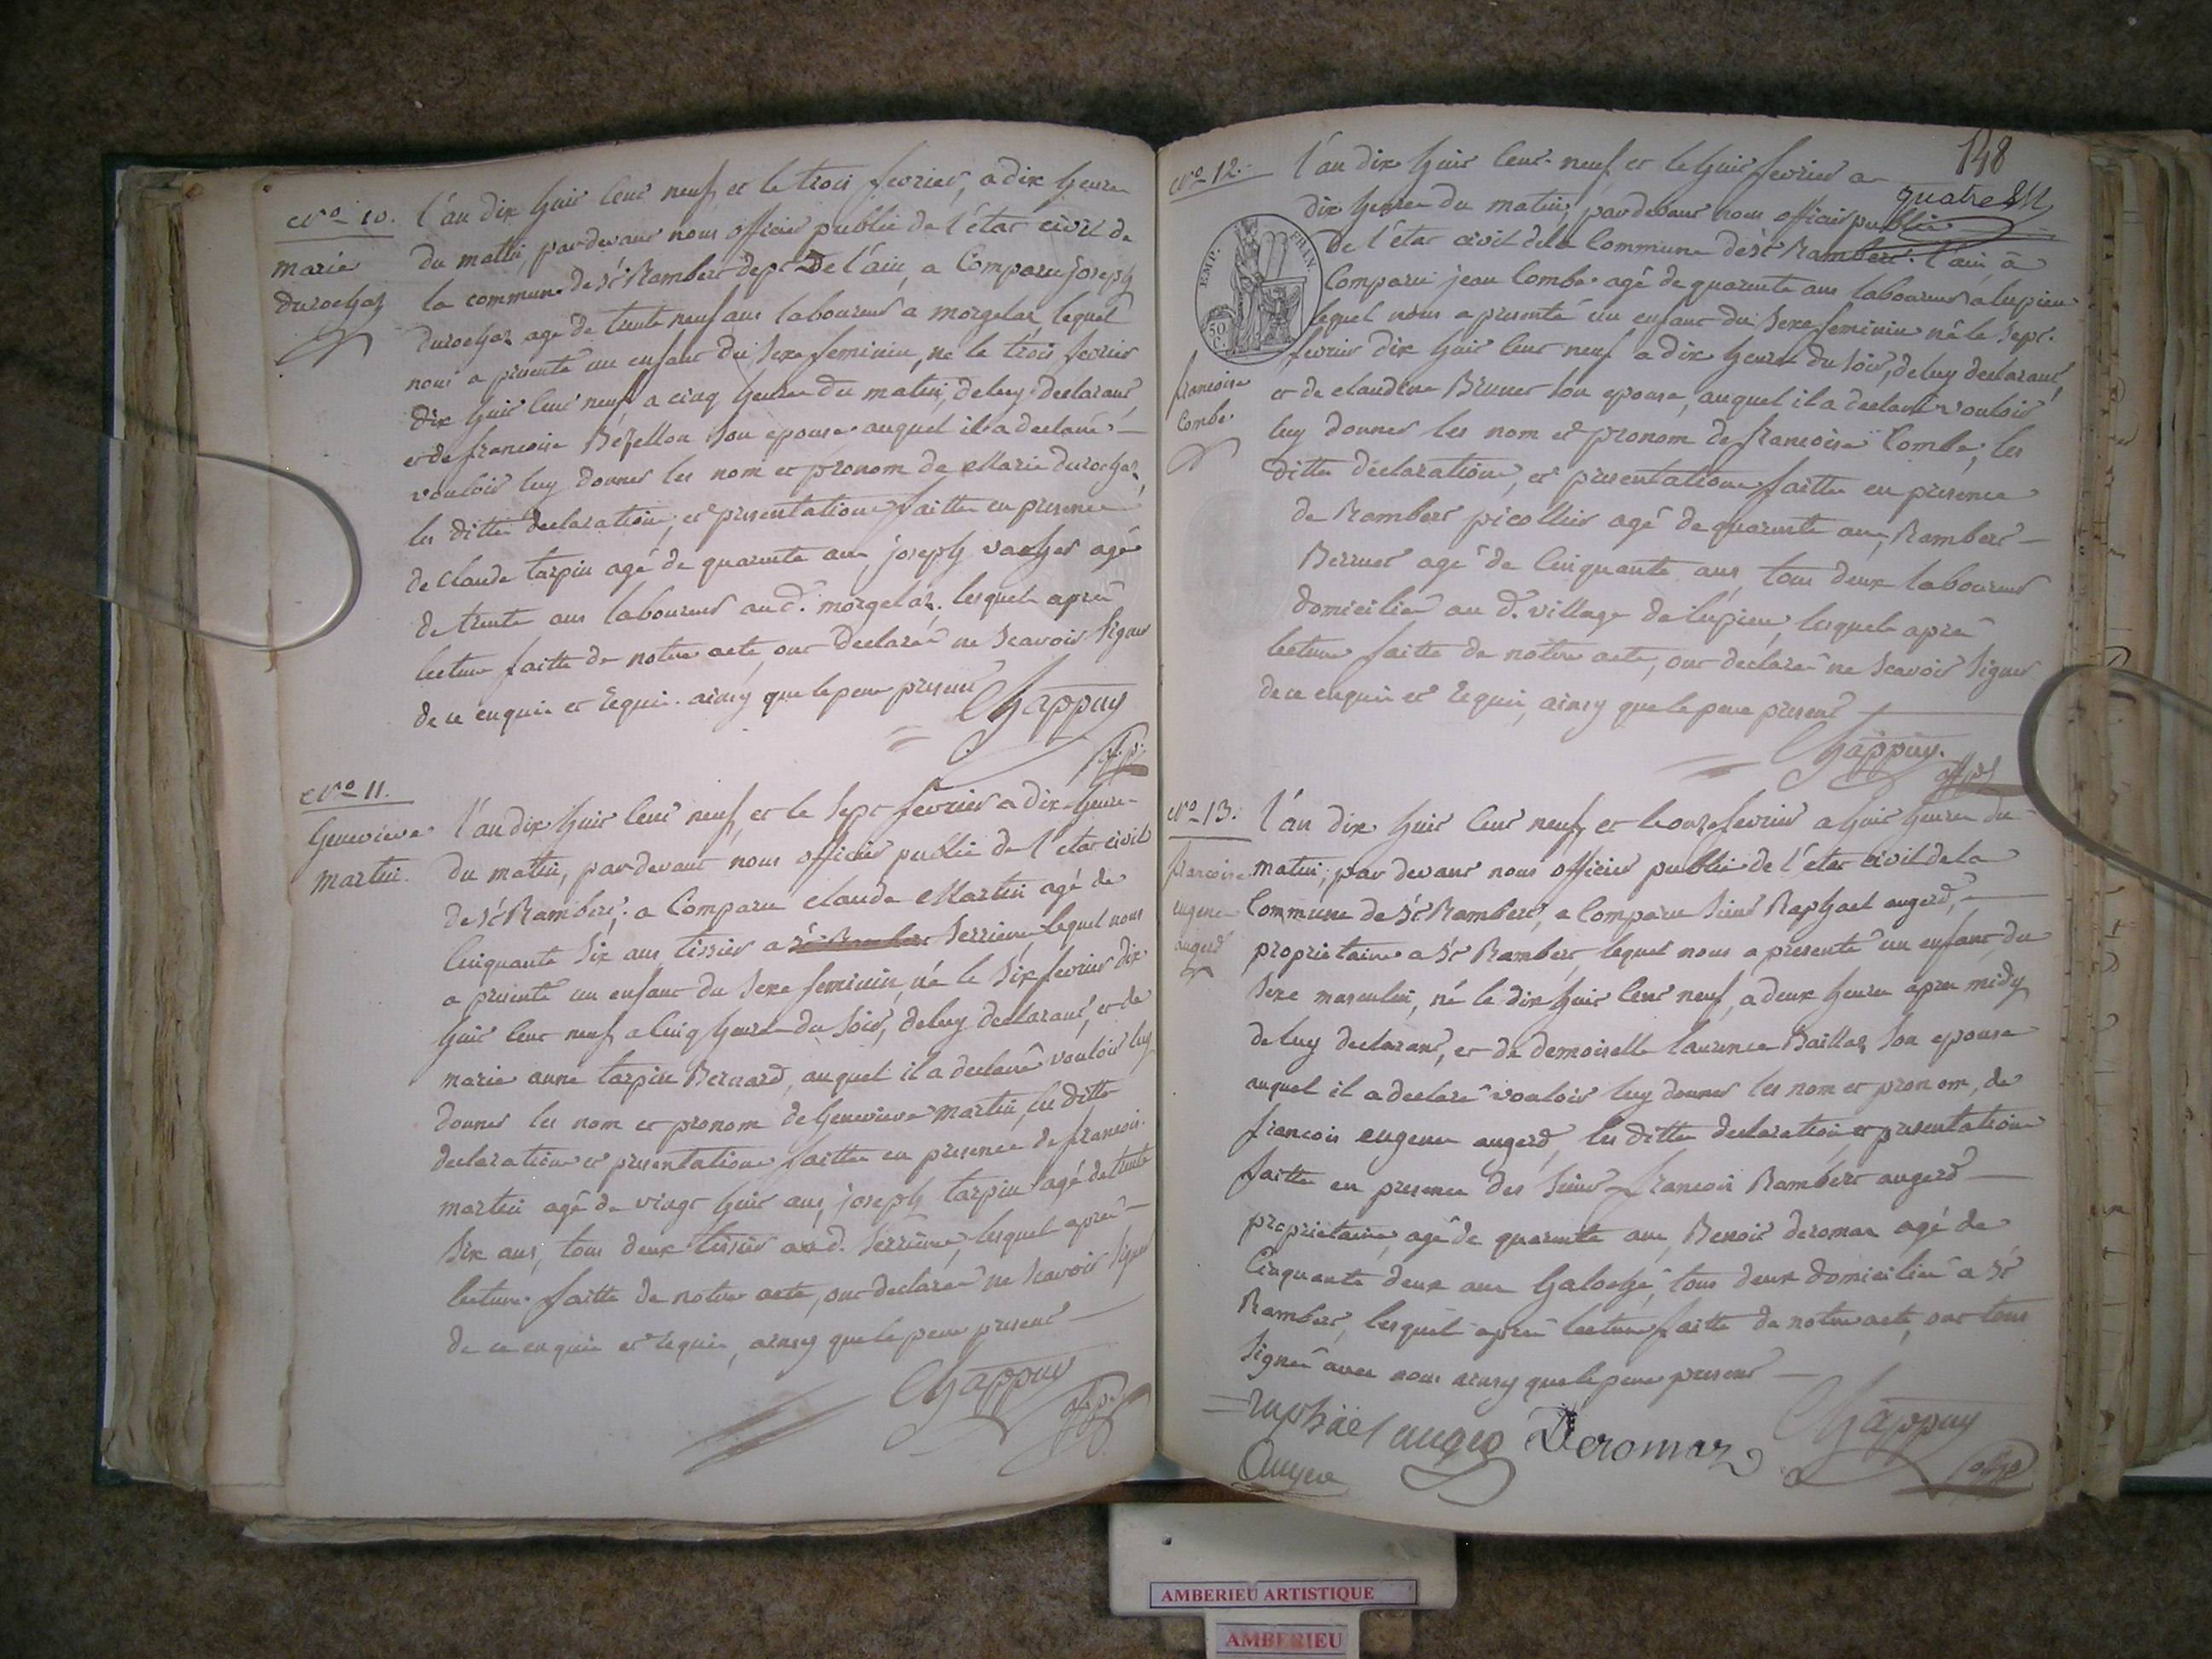 N.o 10.
Marie
Durochaz
l'an dix huit cent neuf et le trois fevrier, a dix heures
du matin par devant nous officier public de l'état civil de
la commune de St Rambert dept De l'ain, a Comparu joseph
Durochaz agé de trente neuf ans laboureur a morgelaz lequel
nous a presenté un enfant du sexe feminin, né le trois fevrier
dix huit cent neuf a cinq heures du matin, de luy declarant,
et de francoise Bezellon son epouse auquel il a declaré
vouloir luy donner les nom et pronom de Marie durochaz,
les dittes declaration, et presentation faitte en presence
de Claude tarpin agé de quarente ans, joseph vacher agé
de trente ans laboureur au d. morgelaz. lesquels aprés
lecture faitte de notre acte, ont declarés ne scavoir signer
de ce enquis et requis. ainsy que le pere present
Chappuy
off. p.
N.o 11.
Genevieve
Martin.
l'an dix huit cent neuf, et le sept fevrier a dix heure
du matin, par devant nous officier public de l'etat civil
de St Rambert; a Comparu Claude Martin agé de
Cinquante six ans, tissier a St Rambert Serriere lequel nous
a presenté un enfant du sexe feminin, né le six fevrier dix
huit cent neuf a cinq heures du soir, de luy declarant, et de
marie anne tarpin Bernard, auquel il a declaré vouloir luy
donner les nom et pronom de Genevieve Martin, les ditte
declaration et presentation faitte en presence de francois
martin agé de vingt huit ans, joseph tarpin agé de trente
six ans, tous deux tissier au d. Serriere, lesquel aprés
lecture faitte de notre acte, ont declarés ne scavoir signer
de ce enquis et requis, ainsy que le pere present
Chappuy
off. p.
148
quatre
N.o 12.
EMP. FRAN.
50 C.
francoise
Combe
l'an dix huit cent neuf et le huit fevrier a
dix heures du matin, par devant nous officier public
de l'état civil de la Commune de St Rambert. l'ain, a
Comparu jean Combe agé de quarente ans laboureur a lupieu
lequel nous a presenté un enfant du sexe feminin né le sept
fevrier dix huit cent neuf a dix heures du soir, de luy declarant,
et de claudine Bruner son epouse, auquel il a declaré vouloir
luy donner les nom et pronom de francoise Combe, les
dittes déclaration, et presentation faitte en presence
de Rambert picollier agé de quarente ans, Rambert
Berrner agé de Cinquante ans, tous deux laboureur
domiciliés au d. village de lupieu, lesquels aprés
lecture faitte de notre acte, ont declarés ne scavoir signer
de ce enquis et requis, ainsy que le pere present
Chappuy.
off. p.
N.o 13.
francoise
eugene
augerd
l'an dix huit cent neuf, et le onze fevrier a huit heures du
matin, par devant nous officier public de l'état civil de la
Commune de St Rambert, a Comparu sieur Raphael augerd,
proprietaire a St Rambert, lequel nous a presenté un enfant du
sexe masculin, né le dix huit cent neuf, a deux heures apres midy
de luy declarant, et de demoiselle laurence Baillaz son epouse
auquel il a declaré vouloir luy donner les nom et pronom, de
francois eugene augerd, les dittes declaration et presentation
faitte en presence des sieur francois Rambert augerd
proprietaire, agé de quarente ans, Benoit deromaz agé de
Cinquante deux ans Galoché, tous deux domiciliés a St
Rambert, lesquels aprés lecture faitte de notre acte, ont tous
signés avec nous ainsy que le pere present
raphäel augerd Deromaz Chappuy
off. p.
AMBERIEU ARTISTIQUE
AMBERIEU